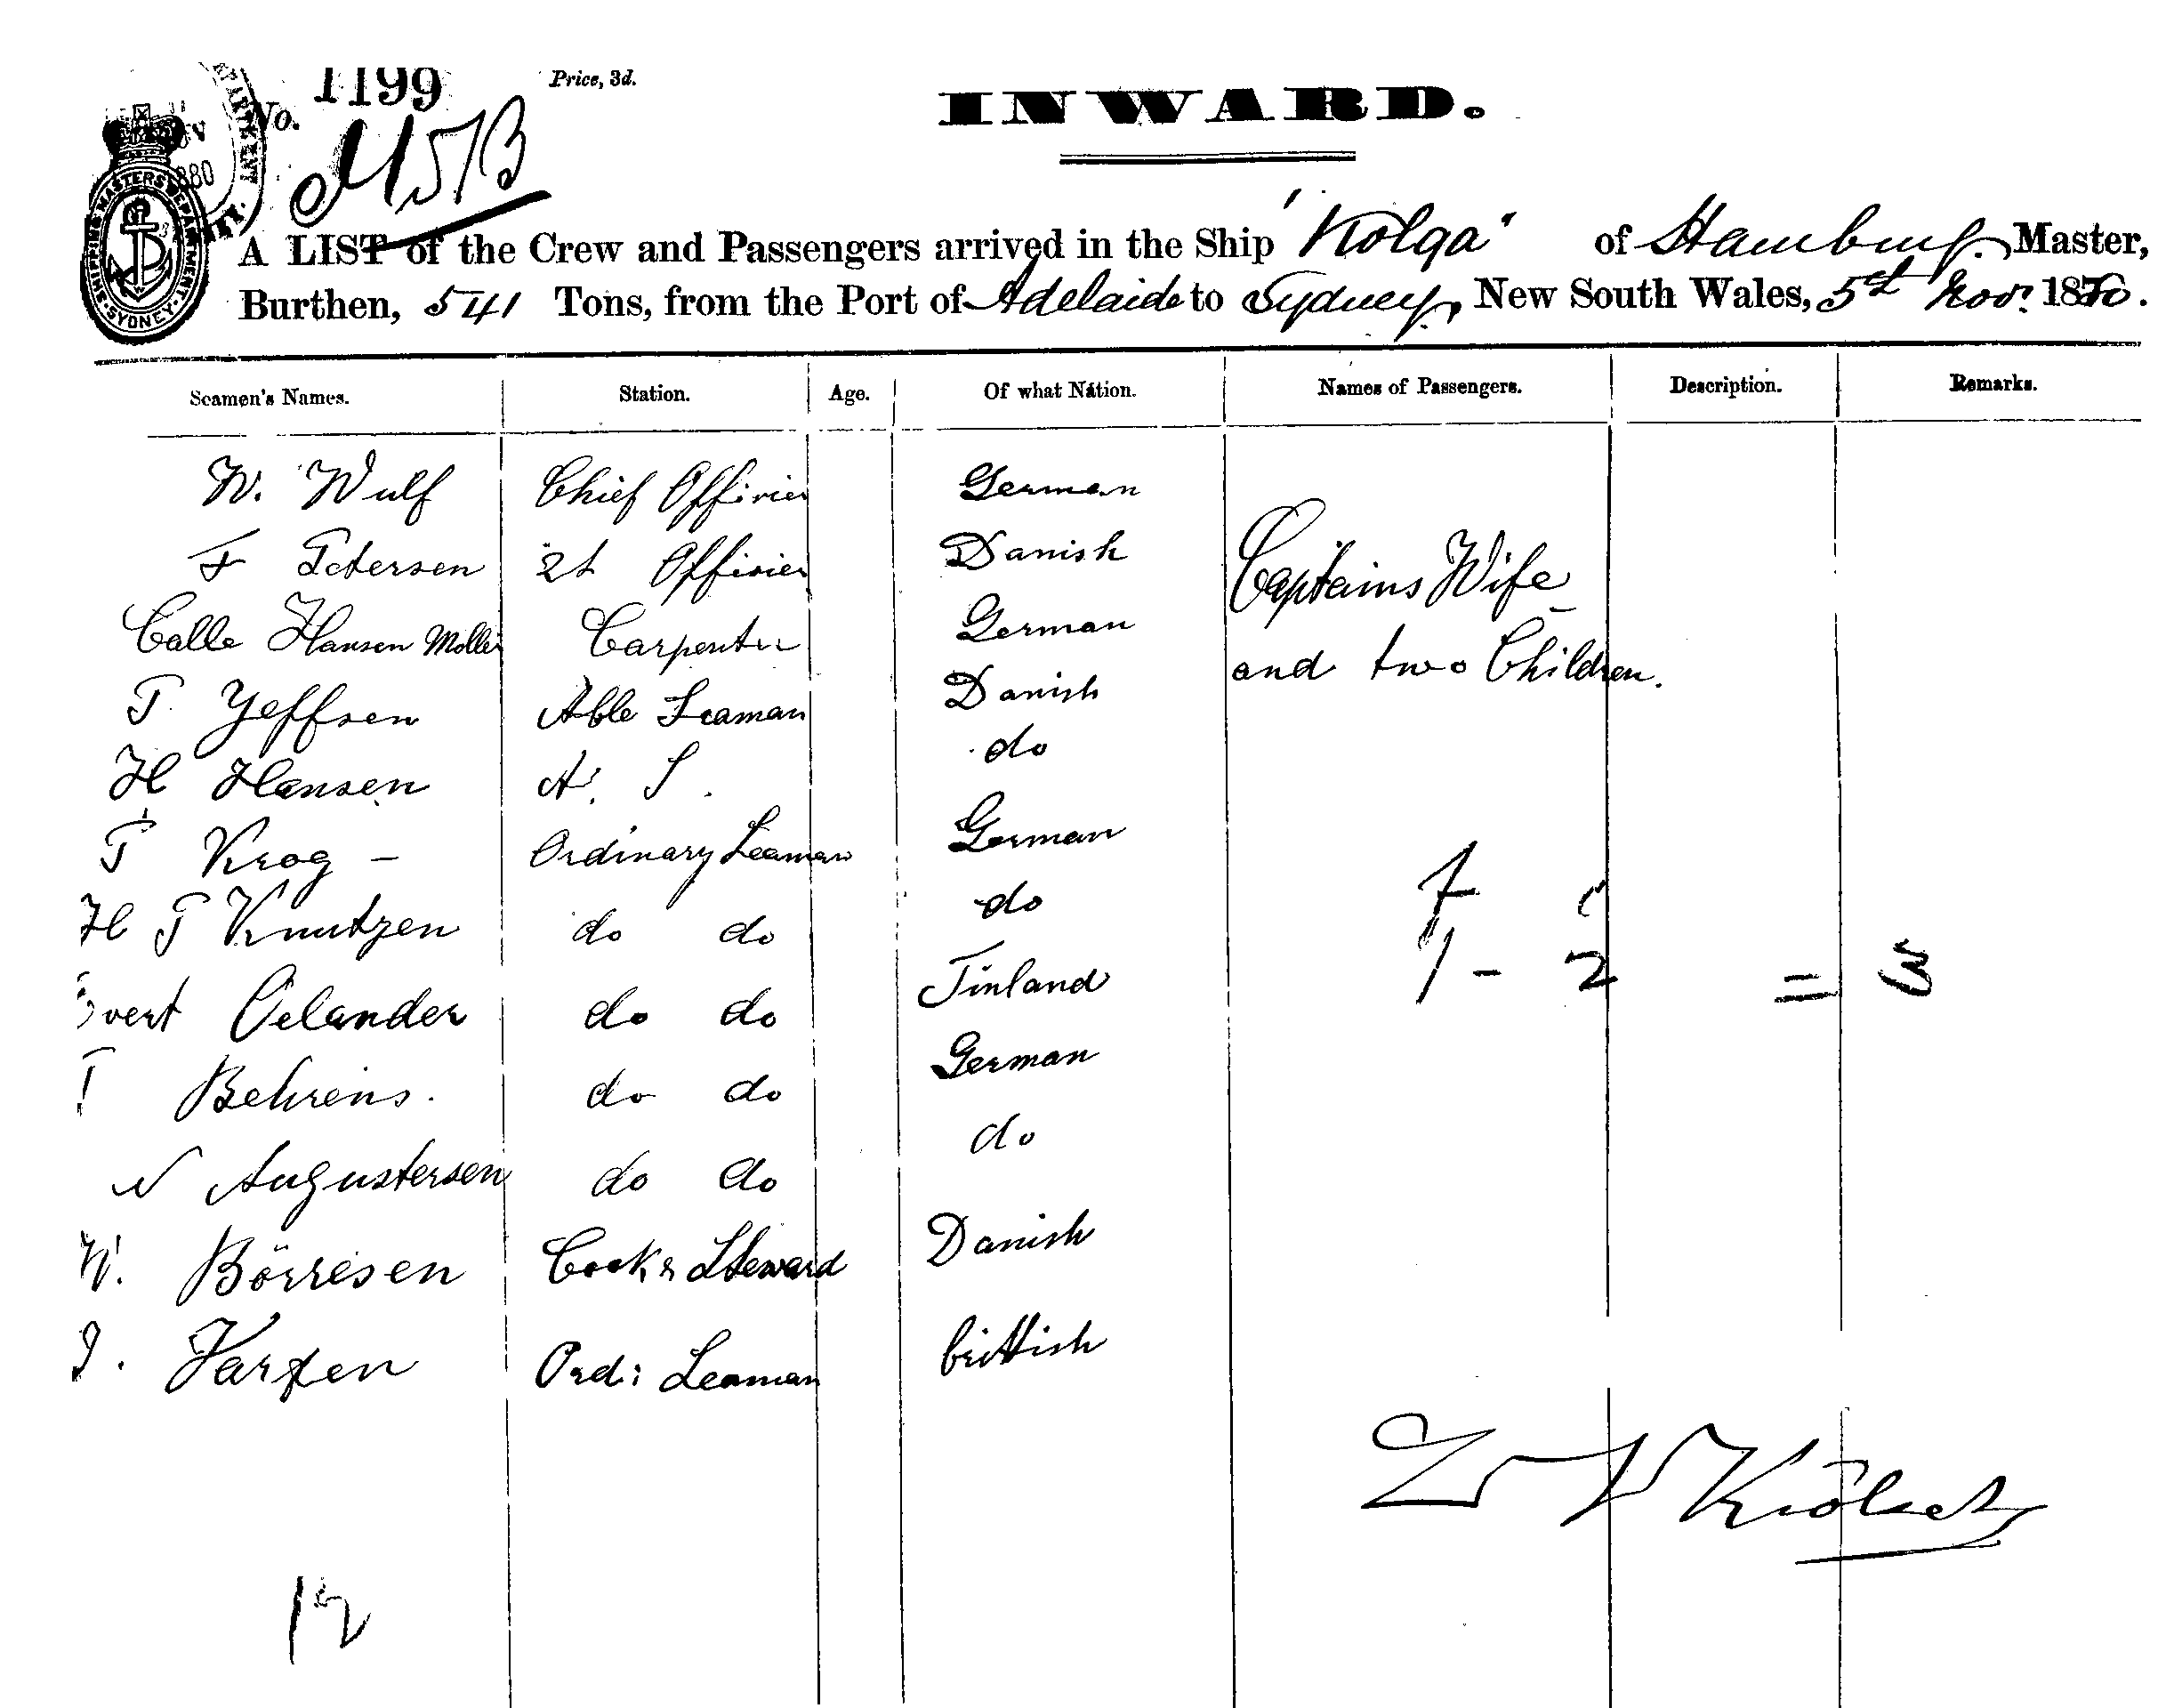 No. 1199 Price, 3d. INWARD.
SHIPPING MASTERS DEPARTMENT. SYDNEY.
A LIST of the Crew and Passengers arrived in the Ship "Kolga" of Hamburg, Master,
Burthen, 541 Tons, from the Port of Adelaide to Sydney, New South Wales, 5st Nov. 1880.
Seamen's Names. Station. Age. Of what Nation. Names of Passengers. Description. Remarks.
W. Wulf Chief Officier German
F Petersen 2t Officier Danish Captains Wife
Calle Hansen Moller Carpenter German and two Children.
P. Yeffsen Able Seaman Danish
H Hansen A. S. do
P Krog - Ordinary Seaman German
H P Knutzen do do do
Oelander do do Finland
1 - 2 = 3
Behrens. do do German
N Augustersen do do do
W. Börresen Cook & Steward Danish
J. Karsten Ord: Seaman brittish
12